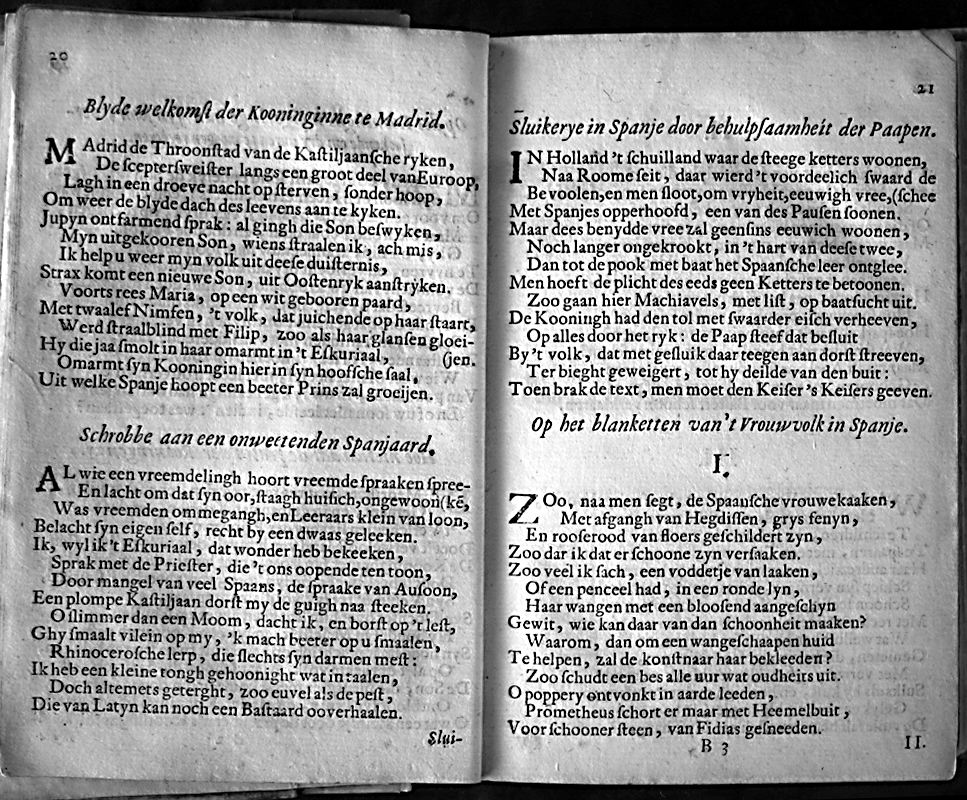 20
Blyde welkomst der Kooninginne te Madrid.
MAdrid de Throonstad van de Kastiljaansche ryken,
De sceptersweister langs een groot deel van Europ,
Lagh in een droeve nacht op sterven, sonder hoop,
Om weer de blyde dach des leevens aan te kyken.
Jupyn ontfarmend sprak: al gingh die Son beswyken,
Myn uitgekooren Son, wiens straalen ik, ach mis,
Ik help u weer myn volk uit deese duisternis,
Strax komt een nieuwe Son, uit Oostenryk aanstryken.
Voorts rees Maria, op een wit gebooren paard,
Met twaalef Nimfen, 't volk, dat juichende op haar staart,
Werd straalblind met Filip, zoo als haar glansen gloei-
Hy die jaa smolt in haar omarmt in 't Eskuriaal, (jen.
Omarmt syn Kooningin hier in syn hoofsche saal,
Uit welke Spanje hoopt een beeter Prins zal groeijen.
Schrobbe aan een onweetenden Spanjaard.
AL wie een vreemdelingh hoort vreemde spraaken spree-
En lacht om dat syn oor, staagh huisich, ongewoon (kē,
Was vreemden ommegangh, en Leeraars klein van loon,
Belacht syn eigen self, recht by een dwaas geleeken.
Ik, wyl ik 't Eskuriaal, dat wonder heb bekeeken,
Sprak met de Priester, die 't ons oopende ten toon,
Door mangel van veel Spaans, de spraake van Ausoon,
Een plompe Kastiljaan dorst my de guigh naa steeken.
O slimmer dan een Moom, dacht ik, en borst op 't lest,
Ghy smaalt vilein op my, 'k mach beeter op u smaalen,
Rhinocerosche lerp, die slechts syn darmen mest:
Ik heb een kleine tongh gehoonight wat in taalen,
Doch altemets geterght, zoo euvel als de pest,
Die van Latyn kan noch een Bastaard ooverhaalen.
Slui-
21
Sluikerye in Spanje door behulpsaamheit der Paapen.
IN Holland 't schuilland waar de steege ketters woonen,
Naa Roome seit, daar wierd 't voordeelich swaard de
Bevoolen, en men sloot, om vryheit, eeuwigh vree, (schee
Met Spanjes opperhoofd, een van des Pausen soonen.
Maar dees benydde vree zal geensins eeuwich woonen,
Noch langer ongekrookt, in 't hart van deese twee,
Dan tot de pook met baat het Spaansche leer ontglee.
Men hoeft de plicht des eeds geen Ketters te betoonen.
Zoo gaan hier Machiavels, met list, op baatsucht uit.
De Kooningh had den tol met swaarder eisch verheeven,
Op alles door het ryk: de Paap steef dat besluit
By 't volk, dat met gesluik daar teegen aan dorst streeven,
Ter bieght geweigert, tot hy deilde van den buit:
Toen brak de text, men moet den Keiser 's Keisers geeven.
Op het blanketten van 't Vrouwvolk in Spanje.
I.
ZOo, naa men segt, de Spaansche vrouwekaaken,
Met afgangh van Hegdissen, grys fenyn,
En rooserood van floers geschildert zyn,
Zoo dar ik dat er schoone zyn versaaken.
Zoo veel ik sach, een voddetje van laaken,
Of een penceel had, in een ronde lyn,
Haar wangen met een bloosend aangeschyn
Gewit, wie kan daar van dan schoonheit maaken?
Waarom, dan om een wangeschaapen huid
Te helpen, zal de konstnaar haar bekleeden?
Zoo schudt een bes alle uur wat oudheits uit.
O poppery ontvonkt in aarde leeden,
Prometheus schort er maar met Heemelbuit,
Voor schooner steen, van Fidias gesneeden.
B 3
II.